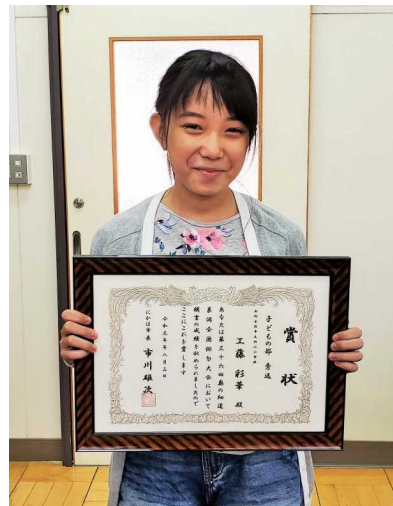 賞状
子どもの部 秀逸
工藤 彩華 殿
あなたは第三十六回奥の細道
象潟全国俳句大会において
頭書の成績を収められましたので
ここにこれを賞します
令和元年八月三日
にかほ市長 市川雄次